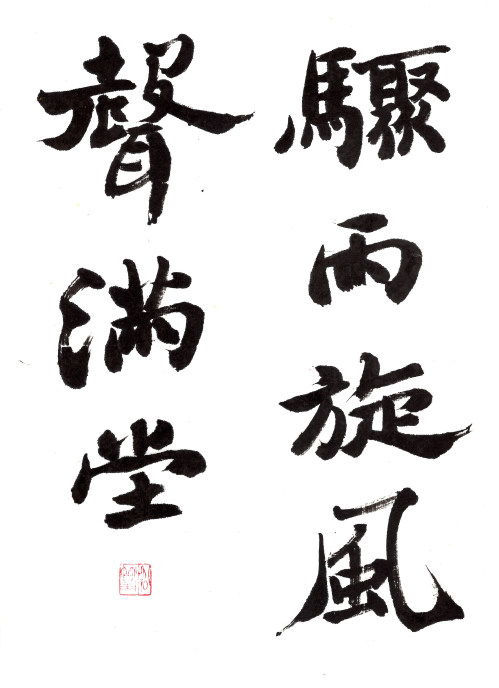 驟雨旋風
聲滿堂